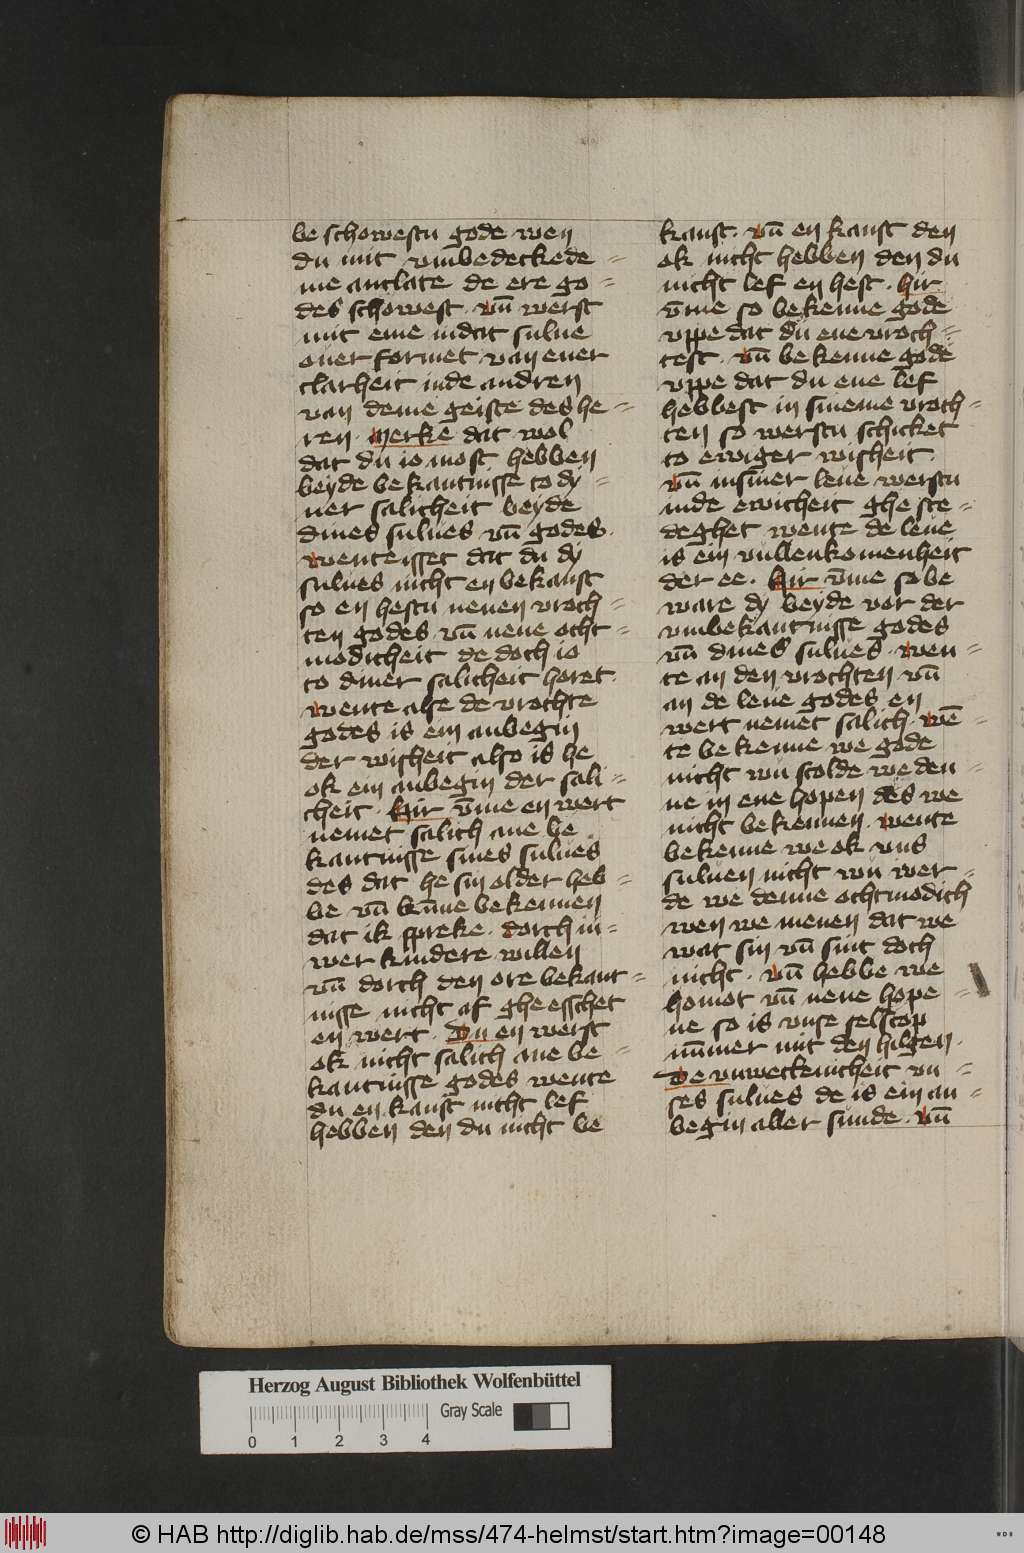 be schowestu gode wen
du mit vmbedeckede =
me antlate de ere go =
des schowest · vn̄ werst
mit eme indat sulue
ouer formet · van ener
clarheit inde andren
van deme geiste des he =
ren · Merke dat wol
dat du io most hebben
beyde bekantnisse to dy =
ner salicheit beyde
dines sulues vn̄ godes ·
wenteisset dat du dy
sulues nicht en bekanst
so en hestu nenen vroch =
ten godes · vn̄ nene otht =
modicheit de doch io
to diner salicheit horet ·
wente alse de vrochte
godes is ein anbegin
der wisheit also is he
ok ein anbegin der sali =
cheit · Hir v̄me en wert
nemet salich ane be
kantnisse sines sulues
des dat he sin older heb =
be vn̄ kūne bekennen
dat ik spreke · dorch in =
wer kindere willen
vn̄ dorch den ore bekant =
nisse nicht af gheesschet
en wert · Du en werst
ok nicht salich ane be =
kantnisse godes wente
du en kanst nicht lef
hebben den du nicht be
kanst · vn̄ en kanst den
ok nicht hebben den du
nicht lef en hest · hir
v̄me so bekenne gode
vppe dat du ene vroch =
test · vn̄ bekenne gode
vppe dat du ene lef
hebbest in sineme vroch =
ten so werstu schicket
to ewiger wisheit
vn̄ insiner leue werstu
inde ewicheit ghe ste =
deghet wente de leue
is ein vullenkomenheit
der ee · Hir v̄me so be
ware dy beyde vor der
vmbekantnisse godes
vn̄ dines sulues · wen =
te an den vrochten vn̄
an de leue godes en
wert nemet salich · wē =
te bekenne we gode
nicht wu scolde we den =
ne in ene hopen des we
nicht bekennen · wente
bekenne we ok vns
suluen nicht wu wer =
de we denne othtmodich
wen we menen dat we
wat sin vn̄ sint doch
nicht · vn̄ hebbe we
homot vn̄ nene hope =
ne so is vnse selscop
nūmer mit den hilgen ·
De vnwetkenicheit vn =
ses sulues de is ein an =
begin aller sunde · vn̄
Herzog August Bibliothek Wolfenbüttel
Gray Scale
0 1 2 3 4
© HAB http://diglib.hab.de/mss/474-helmst/start.htm?image=00148